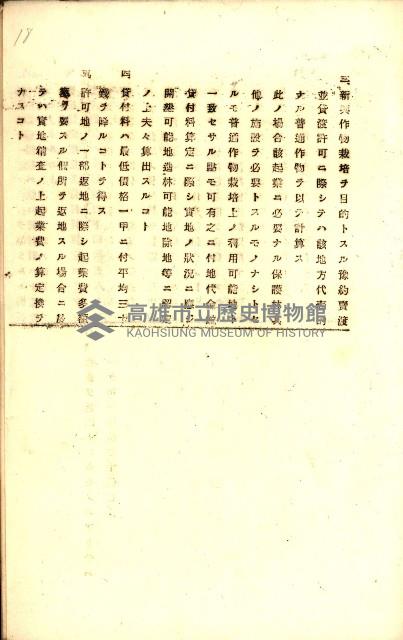 18
三、新興作物栽培ヲ目的トスル豫約賣渡
並貸渡許可ニ際シテハ該地方代表的
ナル普通作物ヲ以テ計算ス
此ノ場合該起業ニ必要ナル保護
他ノ施設ヲ必要トスルモノナシトセ
ルモ普通作物栽培上ノ利用可能地
一致セサル點モ可有之ニ付地代金
貸付料算定ニ際シ實地ノ狀況ニ應シ
開墾可能地造林可能地除地等ニ
ノ上夫々算出スルコト
四、貸付料ハ最低價格一甲ニ付平均三十
錢ヲ降ルコトヲ得ス
五、許可地ノ一部返地ニ際シ起業費多
ク要スル個所ヲ返地スル場合ニ
テハ實地精査ノ上起業費ノ算定換ヲ
ナスコト
高雄市立歷史博物館
KAOHSIUNG MUSEUM OF HISTORY